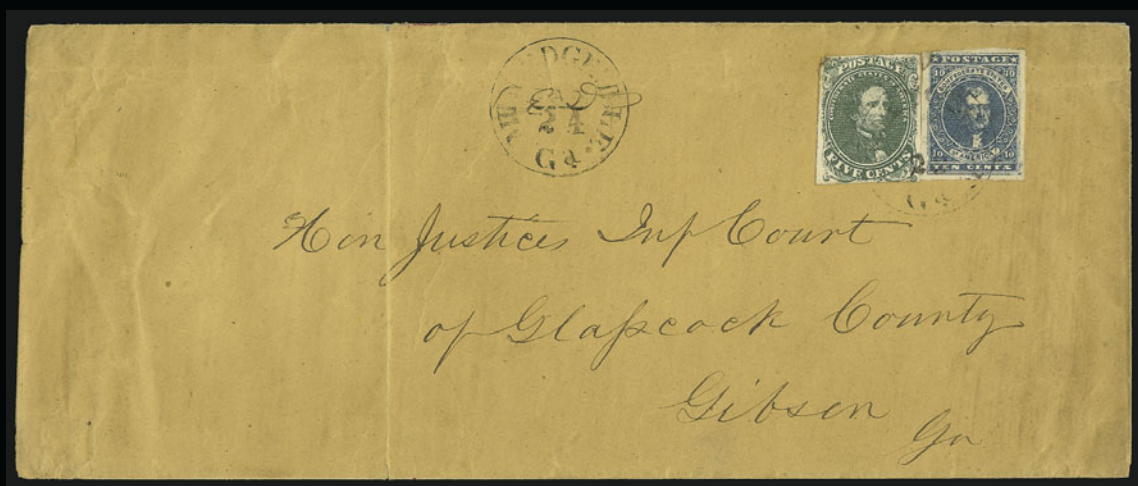 MILLEDGEVILLE.
24
Ga
POSTAGE
CONFEDERATE STATES OF AMERICA
FIVE CENTS
POSTAGE
10 10
CONFEDERATE STATES
OF AMERICA
10 10
TEN CENTS
2
Ga
Hon Justices Inf Court
of Glaſscock County
Gibson
Ga